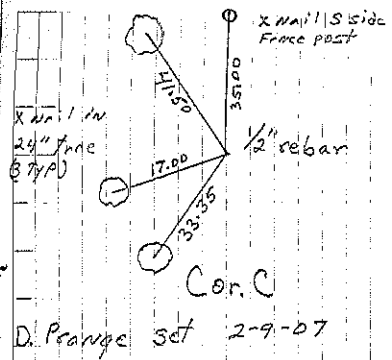 X nail S side
Fence post
41.50
35.00
X nail in
24" tree
(3 TYP)
1/2" rebar
17.00
33.35
Cor. C
D. Prange set 2-9-07